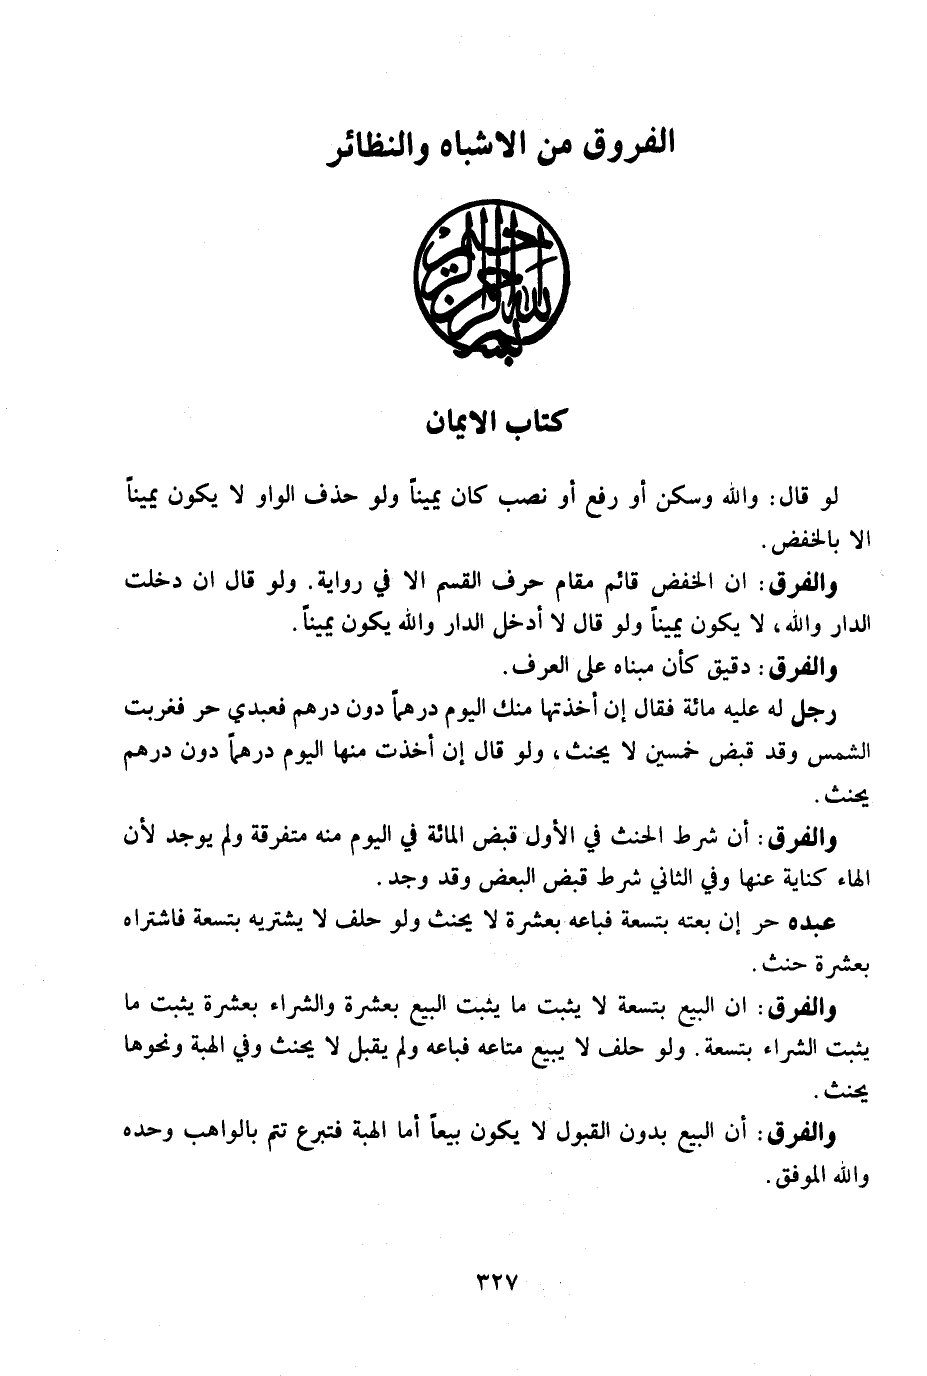 الفروق من الاشباه والنظائر
بسم الله الرحمن الرحيم
كتاب الايمان
لو قال: والله وسكن أو رفع أو نصب كان يميناً ولو حذف الواو لا يكون يميناً
الا بالخفض.
والفرق: ان الخفض قائم مقام حرف القسم الا في رواية. ولو قال ان دخلت
الدار والله، لا يكون يميناً ولو قال لا أدخل الدار والله يكون يميناً.
والفرق: دقيق كأن مبناه على العرف.
رجل له عليه مائة فقال إن أخذتها منك اليوم درهماً دون درهم فعبدي حر فغربت
الشمس وقد قبض خمسين لا يحنث، ولو قال إن أخذت منها اليوم درهماً دون درهم
يحنث.
والفرق: أن شرط الحنث في الأول قبض المائة في اليوم منه متفرقة ولم يوجد لأن
الهاء كناية عنها وفي الثاني شرط قبض البعض وقد وجد.
عبده حر إن بعته بتسعة فباعه بعشرة لا يحنث ولو حلف لا يشتريه بتسعة فاشتراه
بعشرة حنث.
والفرق: ان البيع بتسعة لا يثبت ما يثبت البيع بعشرة والشراء بعشرة يثبت ما
يثبت الشراء بتسعة. ولو حلف لا يبيع متاعه فباعه ولم يقبل لا يحنث وفي الهبة ونحوها
يحنث.
والفرق: أن البيع بدون القبول لا يكون بيعاً أما الهبة فتبرع تتم بالواهب وحده
والله الموفق.
٣٢٧